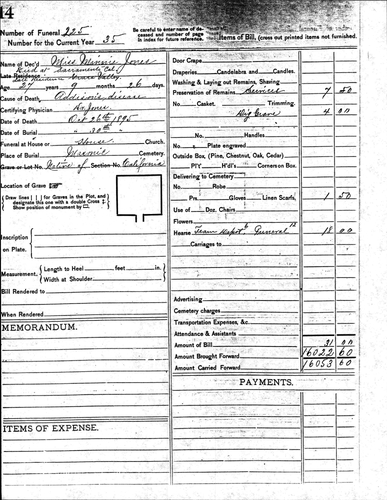 14
Number of Funeral 225
Number for the Current Year 35
Be careful to enter name of deceased and number of page in index for future reference.
Name of Dec'd Miss Minnie Jones
Died at Sacramento, Cal
Late Residence Grass Valley
Age 27 years 9 months 26 days.
Cause of Death Addisons disease
Certifying Physician Dr. Jones
Date of Death Oct 26th 1895
Date of Burial " 30th "
Funeral at House or House Church.
Place of Burial Cemetery.
Grave or Lot No. Native of Section No. California
Location of Grave
Draw lines [ ] for Graves in the Plot, and designate this one with a double Cross
Show position of monument by
Inscription on Plate.
Measurement, Length to Heel feet in.
Width at Shoulder
Bill Rendered to
When Rendered
MEMORANDUM.
ITEMS OF EXPENSE.
Items of Bill, (cross out printed items not furnished.
Door Crape
Draperies Candelabra and Candles.
Washing & Laying out Remains, Shaving
Preservation of Remains Services 7 50
No. Casket. Trimming.
Dig Grave 4 00
No. Handles.
Plate engraved
Outside Box, (Pine, Chestnut, Oak, Cedar)
P'l'y H'd'l's Corners on Box.
Delivering to Cemetery
No. Robe No.
Prs. Gloves Linen Scarfs, 1 50
Use of Doz. Chairs
Flowers
Hearse Team Depot 6 Funeral 12 18 00
Carriages to
Advertising
Cemetery charges
Transportation Expenses, &c.
Attendance & Assistants
Amount of Bill 31 00
Amount Brought Forward 16022 60
Amount Carried Forward 16053 60
PAYMENTS.